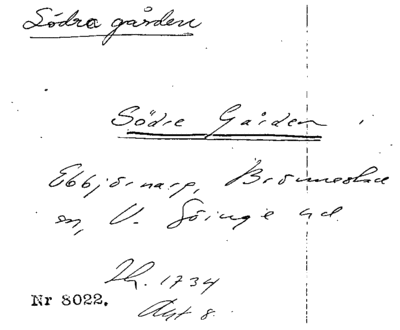 Södra gården
Södre Gården
Ebbjörnarp, Brönnestad
sn, V. Göinge hd.
Th. 1734
Nr 8022.
Akt 8.